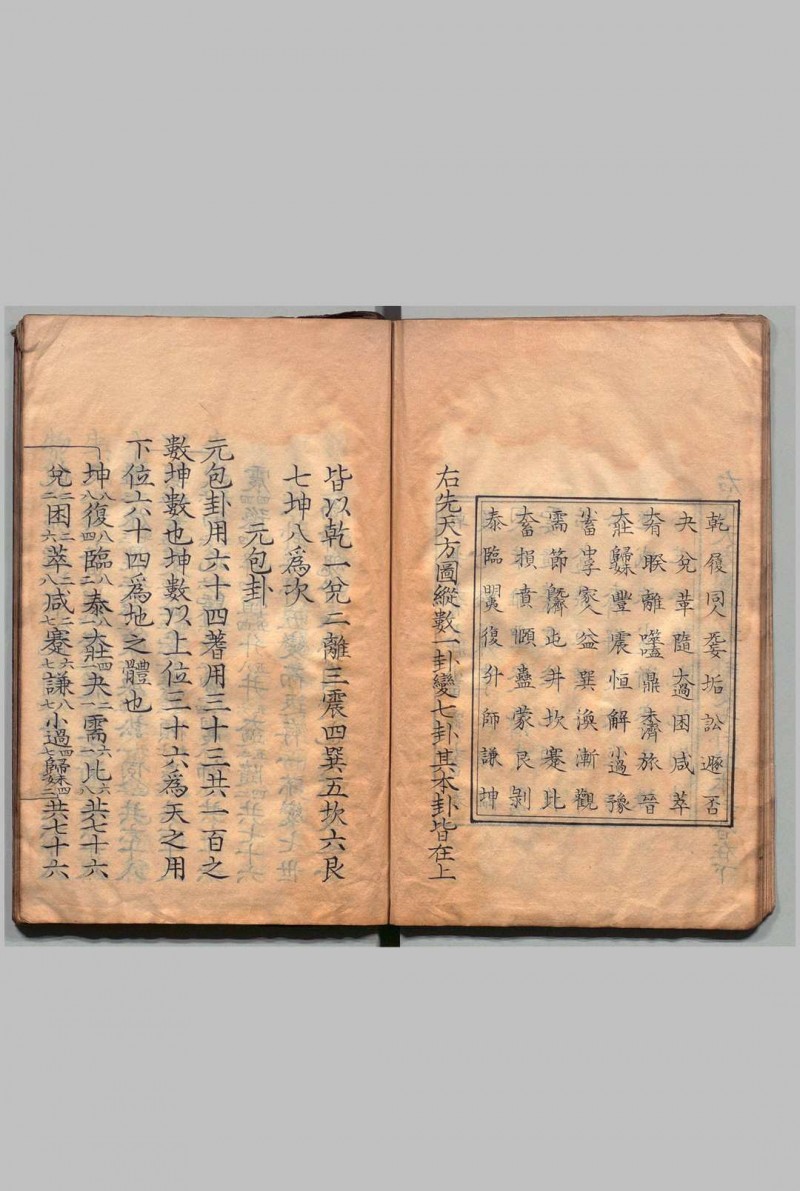 乾履同人无妄垢訟遯否
夬兌革隨大過困咸萃
大有睽離噬嗑鼎未濟旅晉
大壯歸妹豐震恒解小過豫
小畜中孚家人益巽渙漸觀
需節旣濟屯井坎蹇比
大畜損賁頤蠱蒙艮剝
泰臨明夷復升師謙坤
右先天方圖縱數一卦變七卦其本卦皆在上
皆以乾一兌二離三震四巽五坎六艮
七坤八爲次
元包卦
元包卦用六十四著用三十三共一百之
數坤數也坤數以上位三十六爲天之用
下位六十四爲地之體也
坤八八復八四臨八二泰八一大壯四一夬二一需六一比六八共七十六
兌二二困二六萃二八咸二七蹇六七謙八七小過四七歸妹四二共七十六